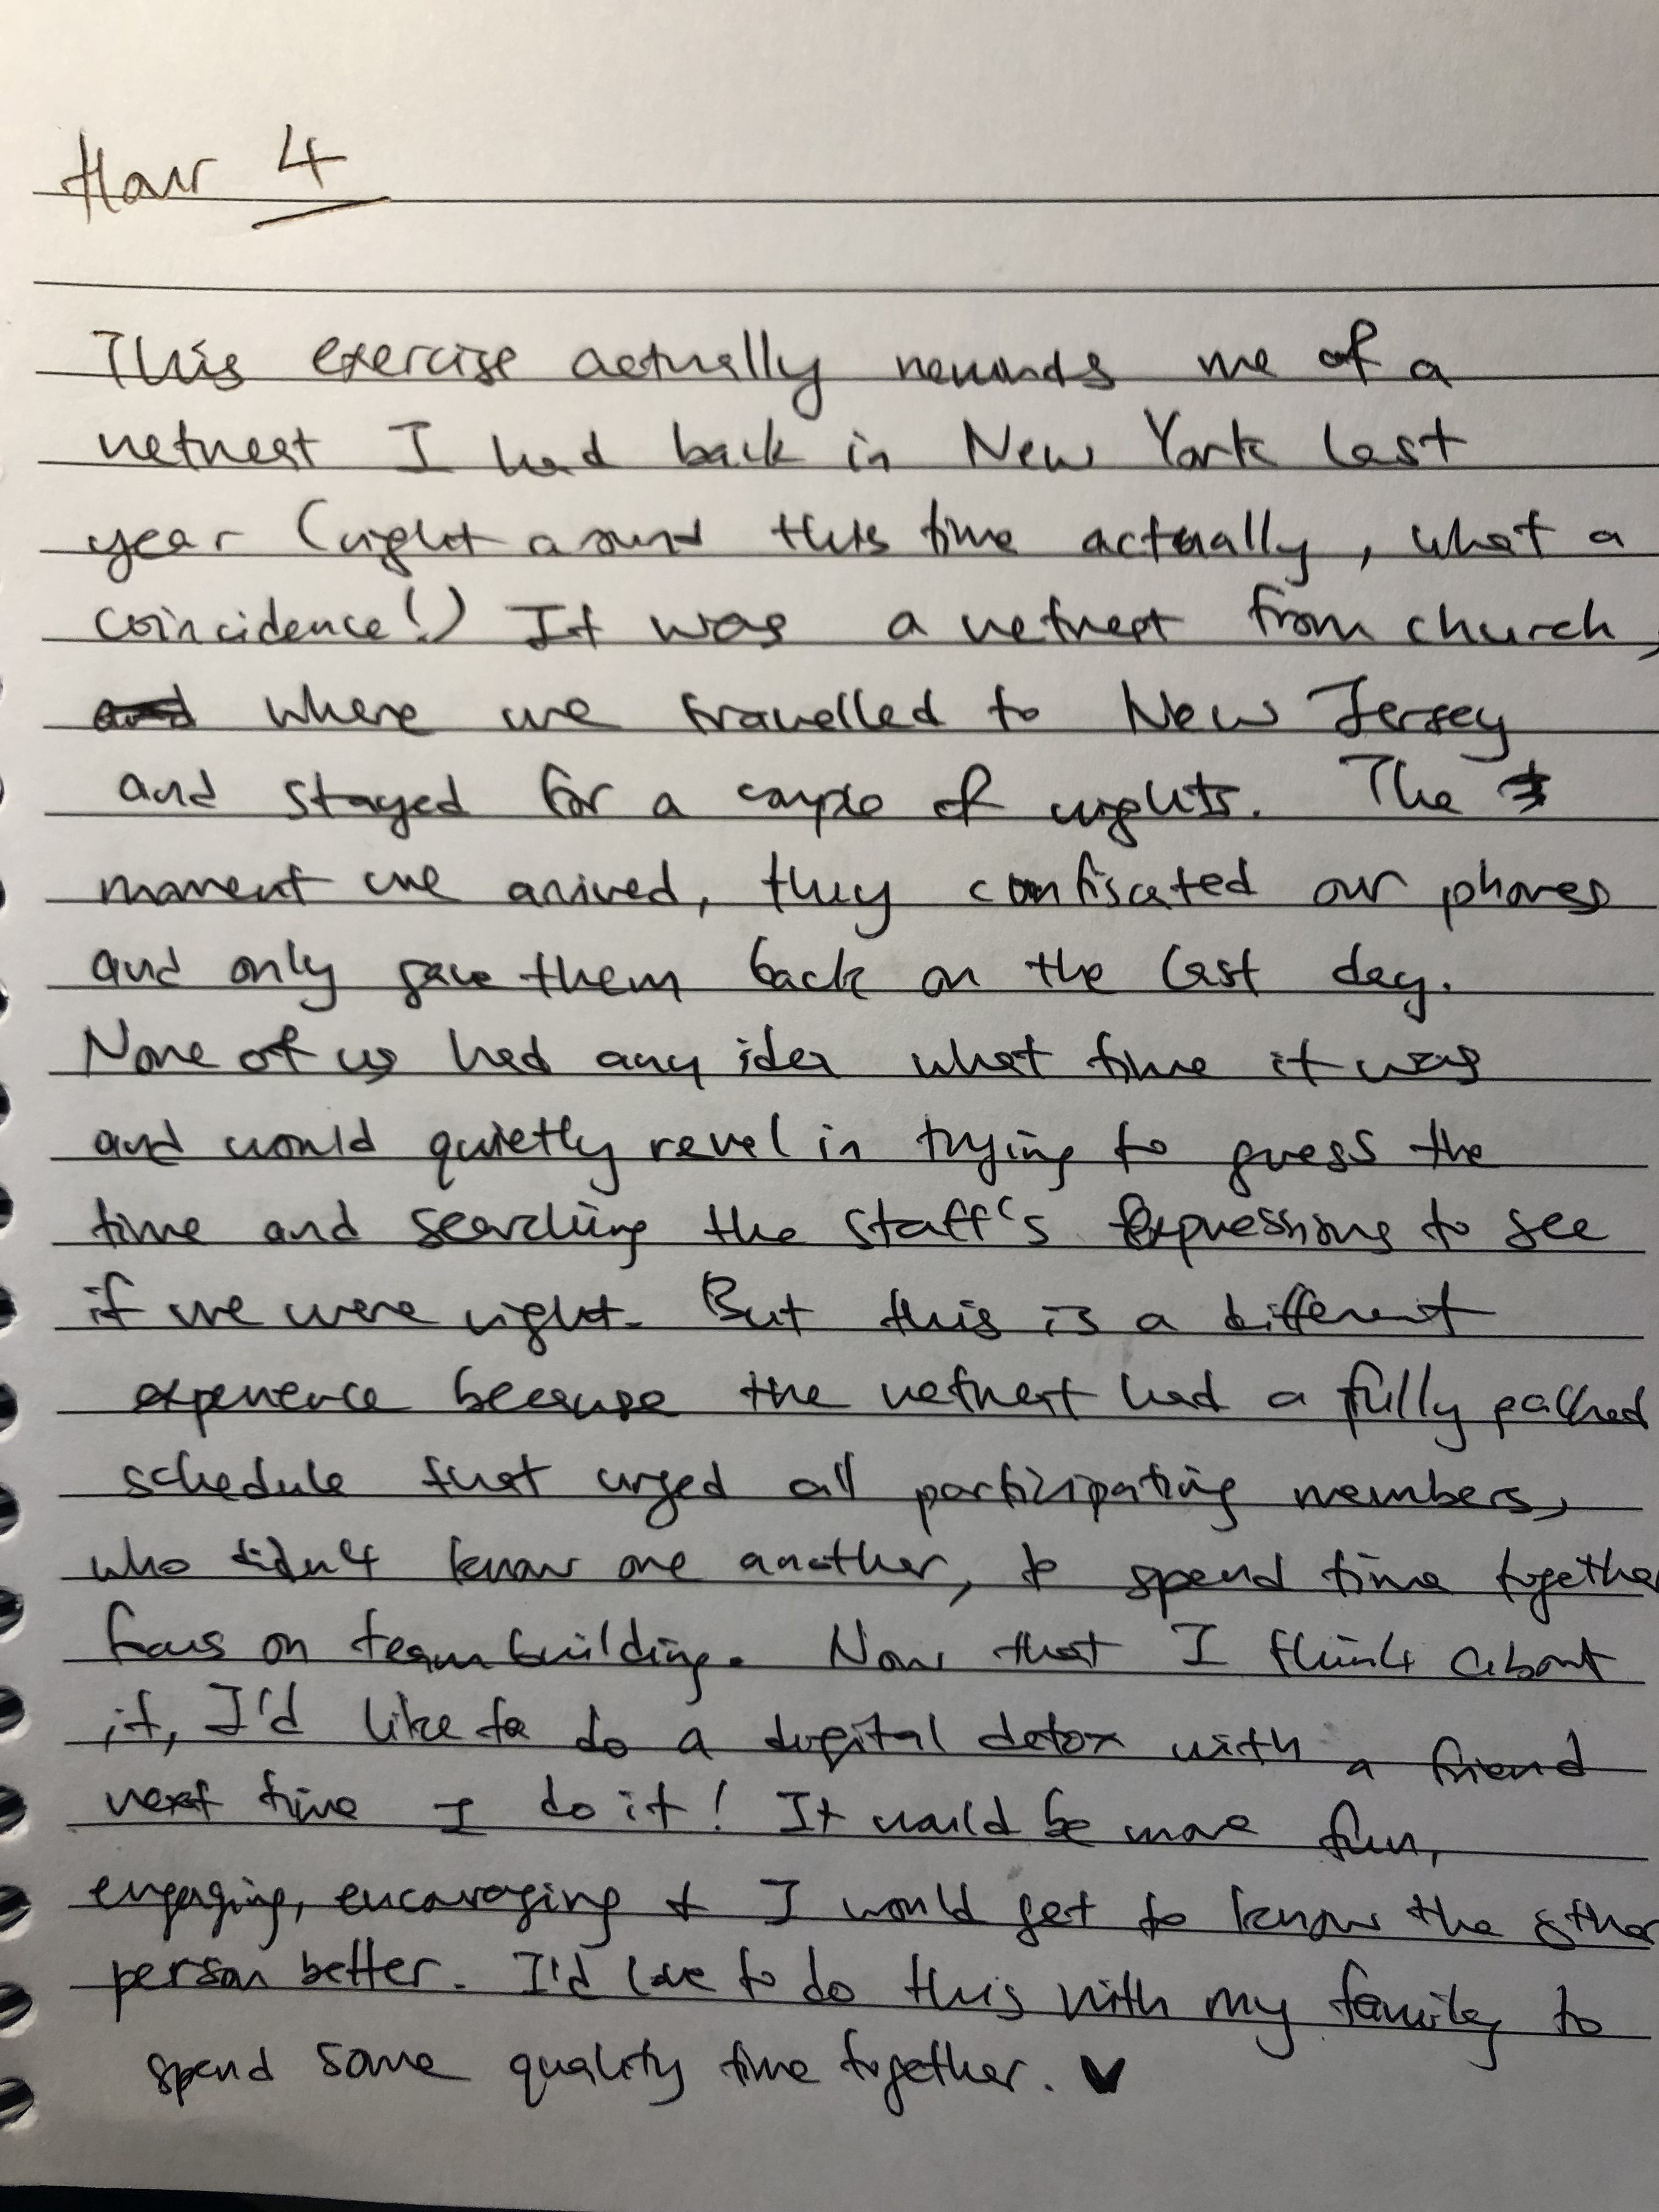 Hour 4
This exercise actually reminds me of a
retreat I had back in New York last
year (right around this time actually, what a
coincidence!) It was a retreat from church,
and where we travelled to New Jersey
and stayed for a couple of nights. The
moment we arrived, they confiscated our phones
and only gave them back on the last day.
None of us had any idea what time it was
and would quietly revel in trying to guess the
time and searching the staff's expressions to see
if we were right. But this is a different
experience because the retreat had a fully packed
schedule that urged all participating members,
who didn't know one another, to spend time together
focus on team building. Now that I think about
it, I'd like to do a digital detox with a friend
next time I do it! It would be more fun,
engaging, encouraging & I would get to know the other
person better. I'd love to do this with my family to
spend some quality time together. ♥